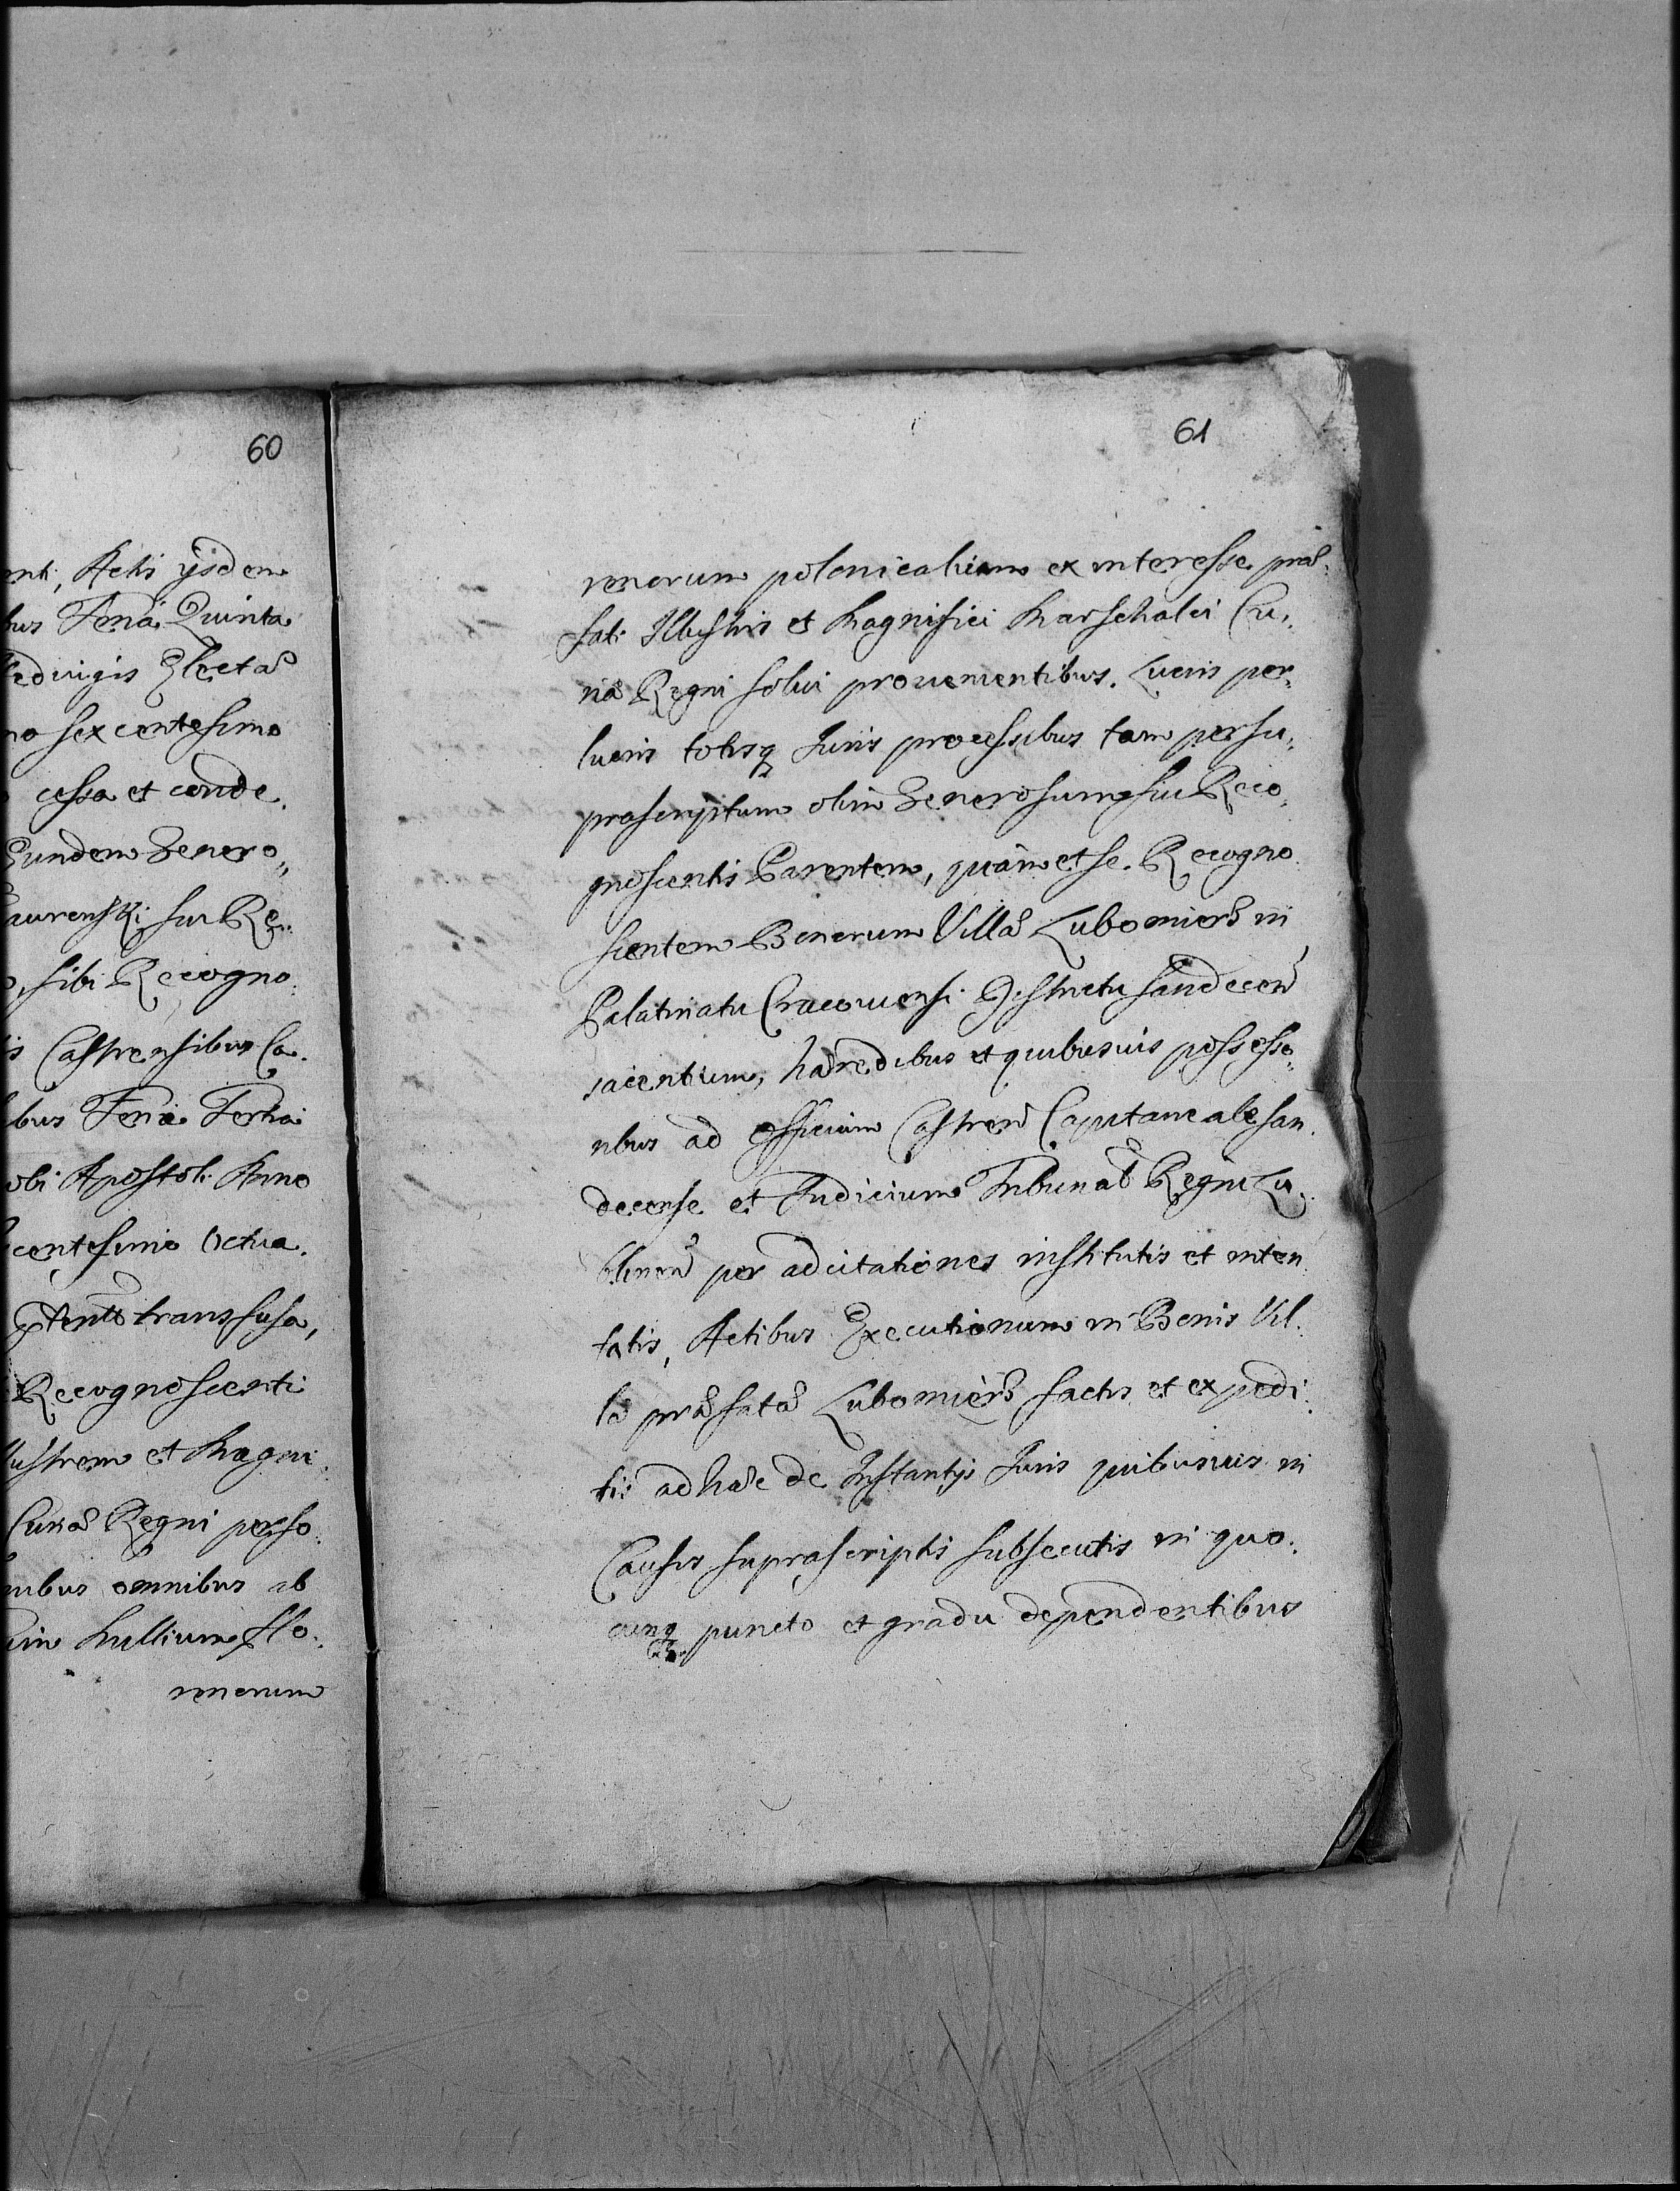 60
enti, Actis ijsdem
bus Feria Quinta
Hedvigis Electæ
no sexcentesimo
cessa et conde,
Eundem Genero„
sui Re„
sibi Recogno.
is Castrensibus Ca.
bus Feria Tertia
obi Apostoli Anno
centesimo Octua.
transfusa,
Recognoscenti
lustrem et Magni.
Curiæ Regni perso.
nibus omnibus ab
Millium Flo.
renerum
61
renorum polonicalium ex interesse præ.
fati Illustris et Magnifici Marschalci Cu„
riæ Regni solvi provenientibus. Lucris per„
lucris totisq Juris processibus tam per su„
prascriptum olim Generosum sui Reco„
gnoscentis Parentem, quàm et se Recogno.
scentem Bonorum Villæ Lubomierz in
Palatinatu Cracoviensi Districtu Sandecen
iacentium, hæredibus et quibusvis possesso„
ribus ad Officium Castren Capitaneale San.
decense et Judicium Tribunal Regni Lu.
blinen per adcitationes institutis et inten
tatis, Actibus Executionum in Bonis Vil.
læ præfatæ Lubomierz factis et expedi.
tis adhæc de Instantijs Juris quibusvis in
Causis suprascriptis subsecutis in quo.
cunq puncto et gradu dependentibus